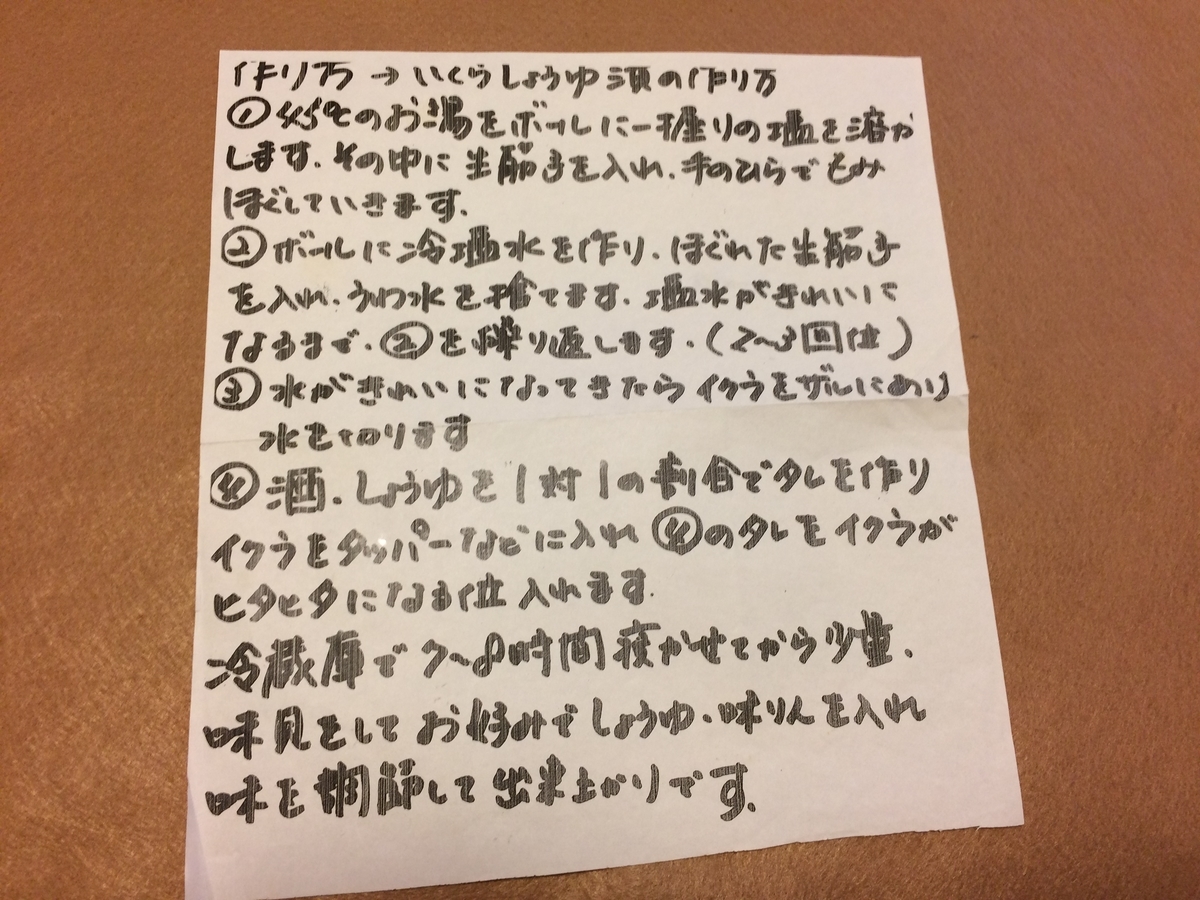 作り方→いくらしょうゆ漬の作り方
①45℃のお湯をボールに一握りの塩を溶か
します、その中に生筋子を入れ、手のひらでもみ
ほぐしていきます。
②ボールに冷塩水を作り、ほぐれた生筋子
を入れ、うわ水を捨てます、塩水がきれいに
なるまで、②を繰り返します。(2〜3回位)
③水がきれいになってきたらイクラをザルにあけ
水を切ります
④酒、しょうゆを1対1の割合でタレを作り
イクラをタッパーなどに入れ④のタレをイクラが
ヒタヒタになる位入れます。
冷蔵庫で7〜8時間寝かせてから少量、
味見をしてお好みでしょうゆ、味りんを入れ
味を調節して出来上がりです。